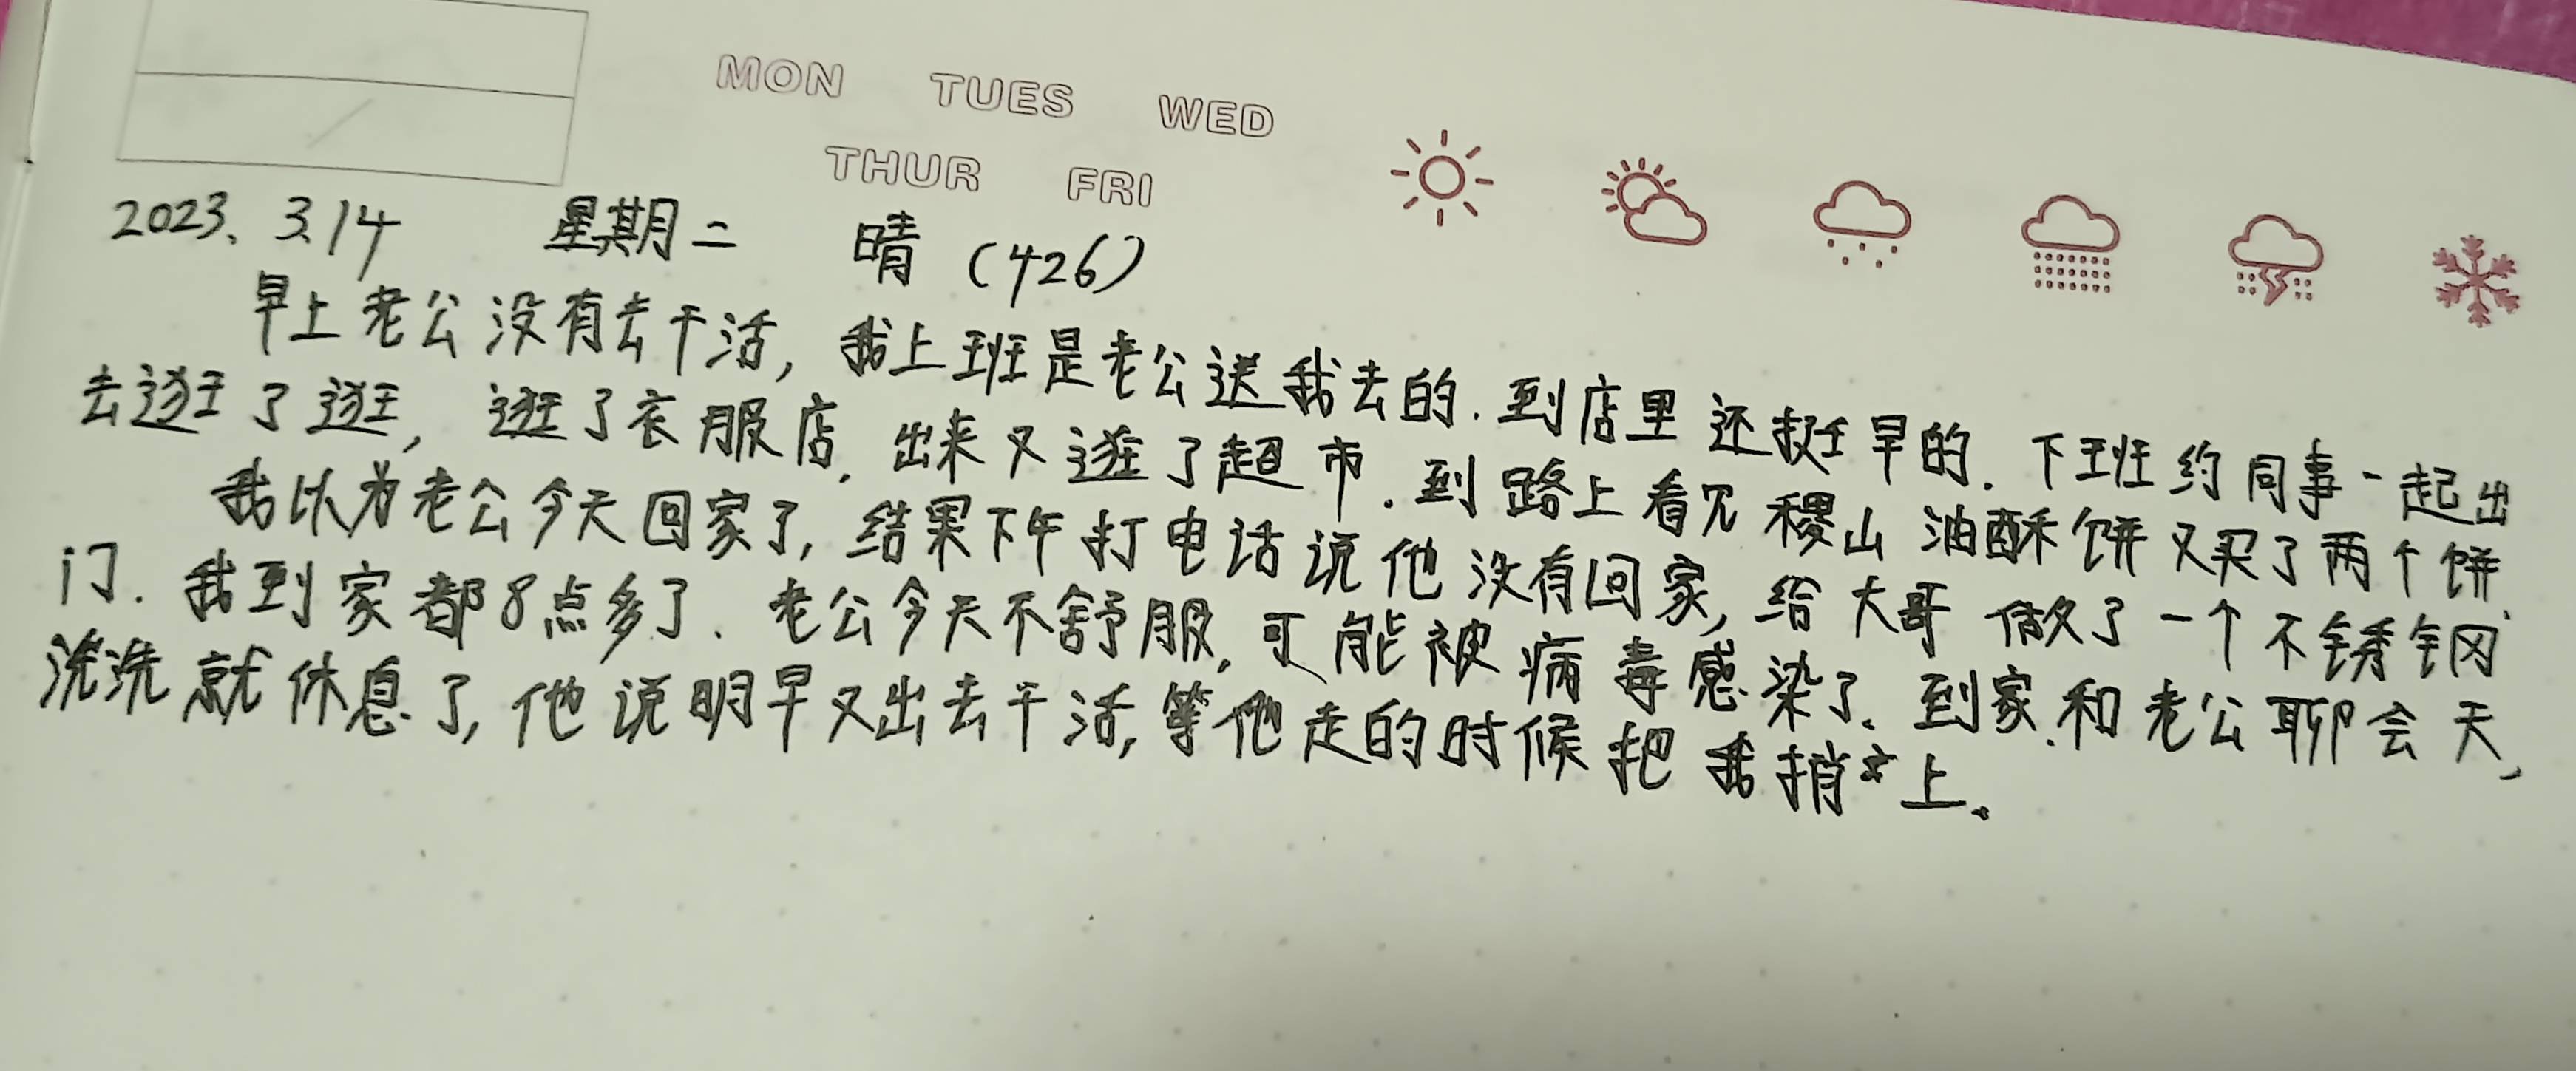 MON TUES WED
THUR FRI
2023、3.14 星期二 晴（426）
早上老公没有去干活，我上班是老公送我去的．到店里还挺早的．下班约同事一起出
去逛了逛，逛了衣服店．出来又逛了超市．到路上看见稷山油酥饼又买了两个饼．
我以为老公今天回家了，结果下午打电话说他没有回家，给大哥做了一个不锈钢
门．我到家都8点多了．老公今天不舒服，可能被病毒感染了．到家和老公聊会天，
洗洗就休息了，他说明早又出去干活，等他走的时候把我捎上。